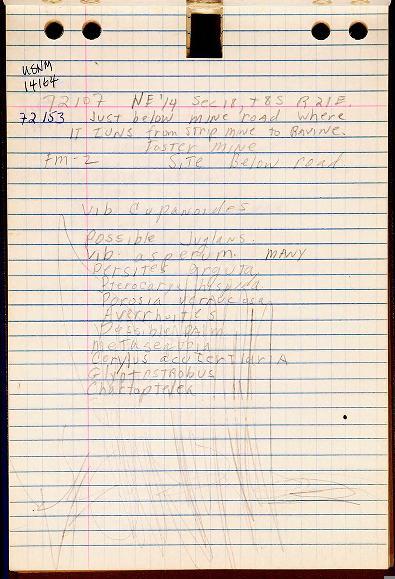 USNM
14164
72107 NE 1/4 Sec 18, T8S R 21E.
72153 Just below mine road where
IT runs from strip mine to Ravine.
Foster mine
FM-2 Site below road
Vib Cupanoides
Possible Juglans.
Vib. asperum. MANY
Persites argutus
Pterocarya hispida
Porosia verrucosa
Averrhoites
Possible PAlm
metasequoia
Corylus acutertiaria
Glyptostrobus
Chaetoptelea